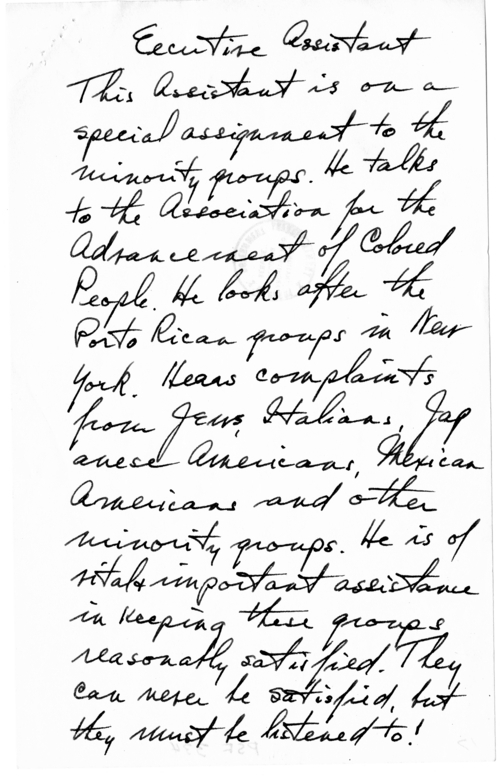 Eecutive Assistant
This Assistant is on a
special assignment to the
minority groups. He talks
to the Association for the
Advancement of Colored
People. He looks after the
Porto Rican groups in New
York. Hears complaints
from Jews, Italians, Jap
anese Americans, Mexican
Americans and other
minority groups. He is of
vital & important assistance
in keeping these groups
reasonably satisfied. They
can never be satisfied, but
they must be listened to!